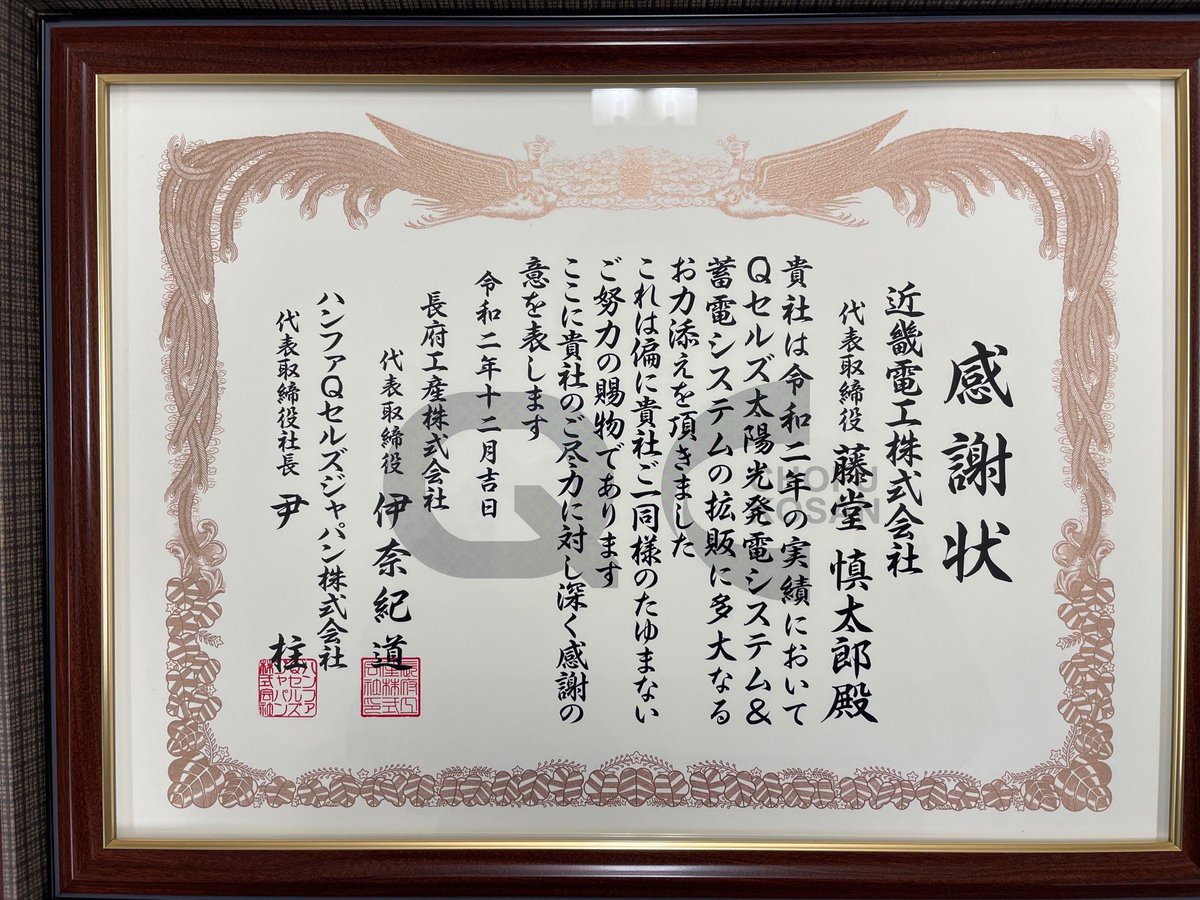 感謝状
近畿電工株式会社
代表取締役 藤堂 慎太郎殿
貴社は令和二年の実績において
Qセルズ太陽光発電システム&
蓄電システムの拡販に多大なる
お力添えを頂きました
これは偏に貴社ご一同様のたゆまない
ご努力の賜物であります
ここに貴社のご尽力に対し深く感謝の
意を表します
令和二年十二月吉日
長府工産株式会社
代表取締役 伊奈紀道
長府工産株式会社印
ハンファQセルズジャパン株式会社
代表取締役社長 尹 柱
ハンファQセルズジャパン株式会社
CHOFU
KOSAN